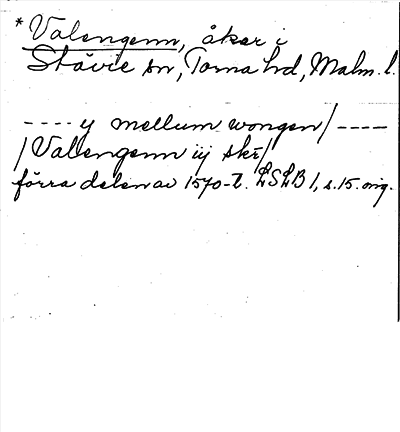 * Valengenn, åker i
Stävie sn, Torna hd, Malm. l.
---- y mellum wongen/ ----
/Valengenn iij skr/
förra delen av 1570-t. LSLB 1, s. 15. orig.